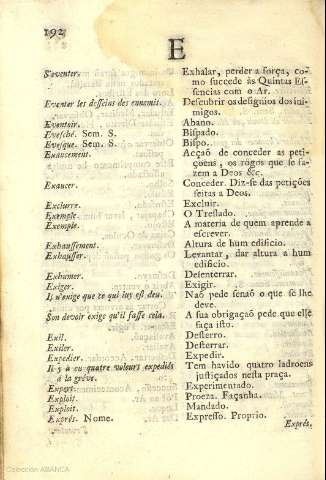 192
E
S'éventer. Exhalar, perder a força, co-
mo succede às Quintas Es-
sencias com o Ar.
Eventer les desseins des ennemis. Descubrir os designios dos ini-
migos.
Eventoir. Abano.
Evesché. Sem. S. Bispado.
Evesque. Sem. S. Bispo.
Exaucement. Acçaõ de conceder as peti-
çoens, os rogos que se fa-
zem a Deos &c.
Exaucer. Conceder. Diz-se das petições
feitas a Deos.
Exclurre. Excluir.
Exemple. O Treslado.
Exemple. A materia de quem aprende a
escrever.
Exhaussement. Altura de hum edificio.
Exhausser. Levantar, dar altura a hum
edificio.
Exhumer. Desenterrar.
Exiger. Exigir.
Il n'exige que ce qui luy est deu. Naõ pede senaõ o que se lhe
deve.
Son devoir exige qu'il fasse cela. A sua obrigaçaõ pede que elle
faça isto.
Exil. Desterro.
Exiler. Desterrar.
Expedier. Expedir.
Il y a eu quatre voleurs expediés Tem havido quatro ladroens
à la grêve. justiçados nesta praça.
Expert. Experimentado.
Exploit. Proeza. Façanha.
Exploit. Mandado.
Exprés. Nome. Expresso. Proprio.
Exprés,
Colección ABANCA